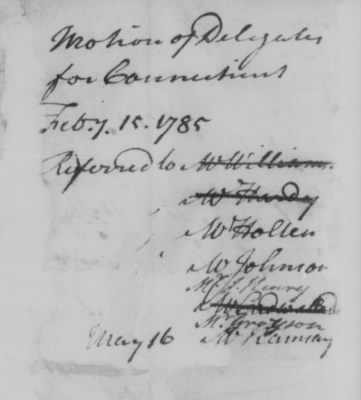 Motion of Delegates
for Connecticut
Feb.y. 15. 1785
Referred to Mr Williams.
Mr Hardy
Mr Holten
Mr Johnson
Mr J. Henry
Mr Grayson
May 16 Mr Ramsay